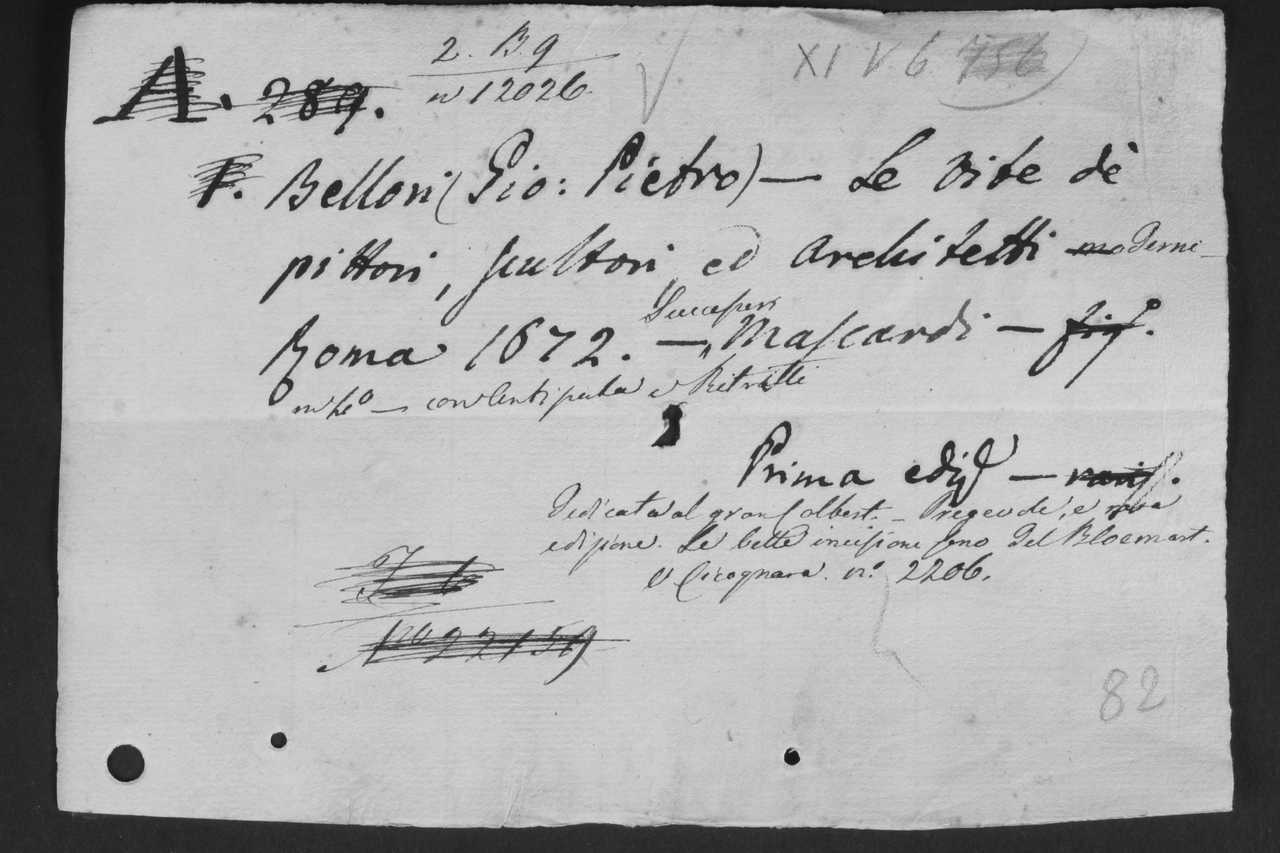 2. B. 9
A. 289. n 12026. XI V 6 756
F. Bellori (Gio: Pietro) — Le Vite dè
pittori, scultori ed Architetti moderni —
Successori
Roma 1672. — Mascardi — fig.º
in 4º — con Antiporta e Ritratti
Prima ediz. — rariss.
Dedicata al gran Colbert. — Pregevole, e rara
edizione. Le belle incisioni sono del Bloemart.
V Cicognara. nº 2206.
Nº 22159
82